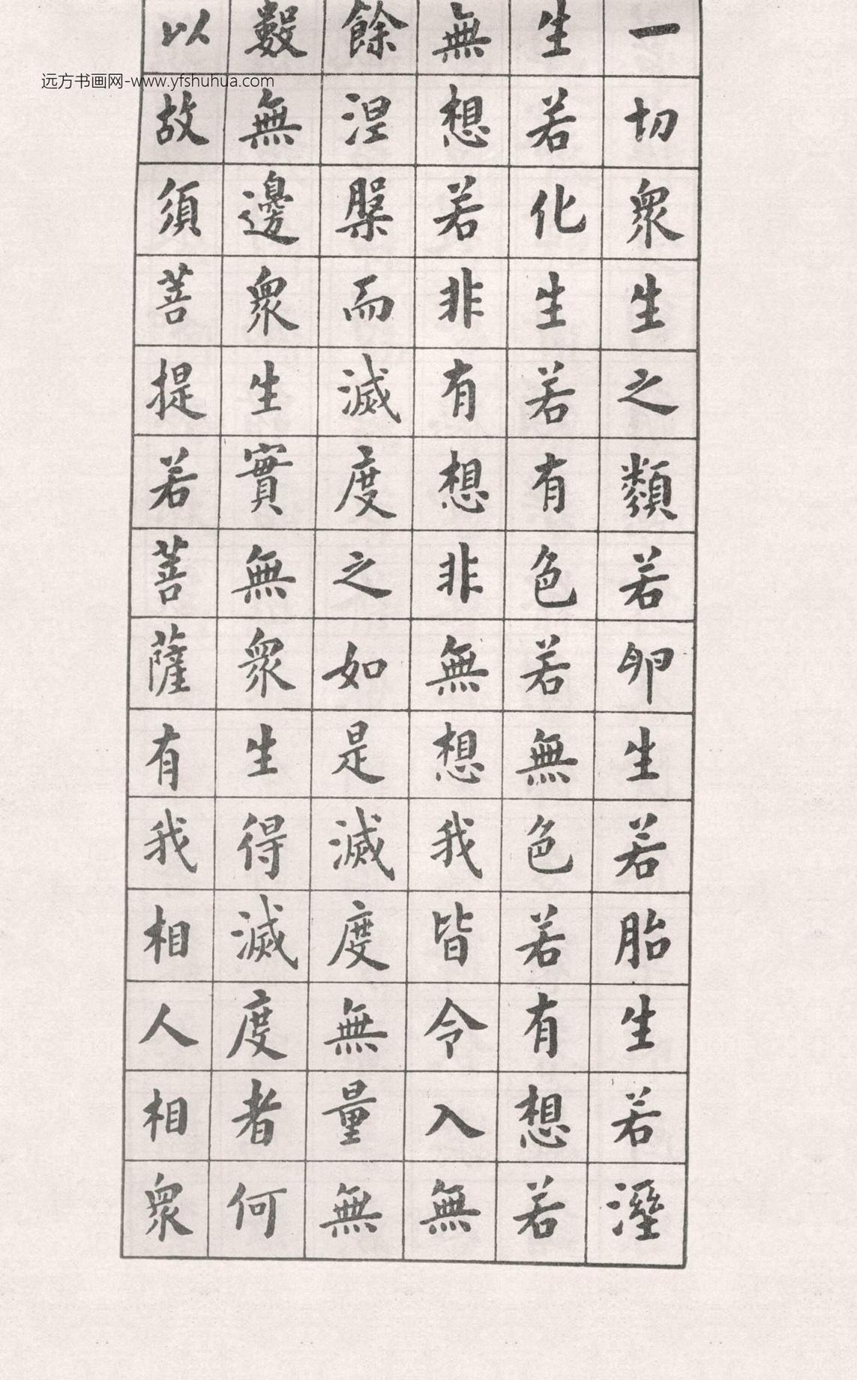 一切衆生之類若卵生若胎生若溼
生若化生若有色若無色若有想若
無想若非有想非無想我皆令入無
餘涅槃而滅度之如是滅度無量無
數無邊衆生實無衆生得滅度者何
以故須菩提若菩薩有我相人相衆
远方书画网-www.yfshuhua.com